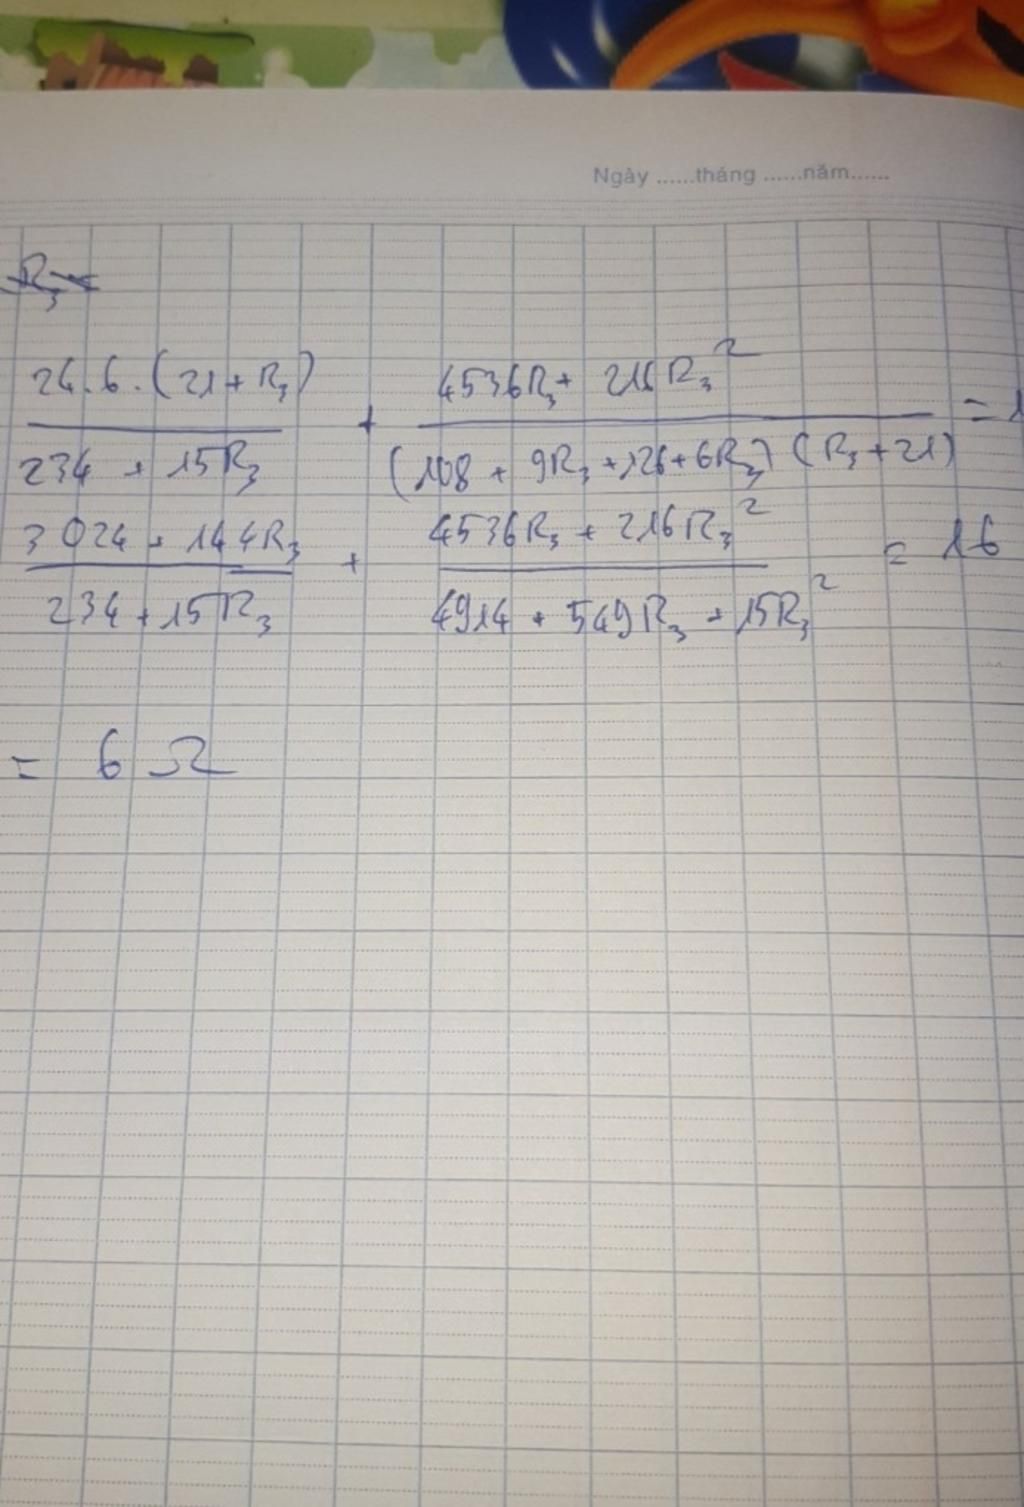 Ngày ......tháng ......năm......
R₃ =
24.6.(21 + R₃) / 234 + 15R₃ + 4536R₃ + 216R₃² / (108 + 9R₃ + 126 + 6R₃) (R₃ + 21) = 1
3024 + 144R₃ / 234 + 15R₃ + 4536R₃ + 216R₃² / 4914 + 549R₃ + 15R₃² = 16
= 6 Ω